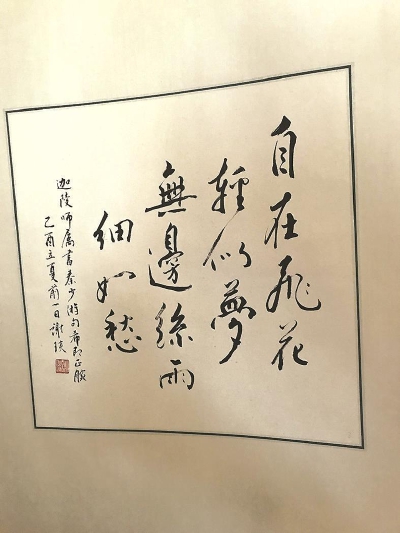 自在飛花
輕似夢
無邊絲雨
細如愁
迦陵師屬書秦少游句希即正腕
乙酉立夏前一日謝琰